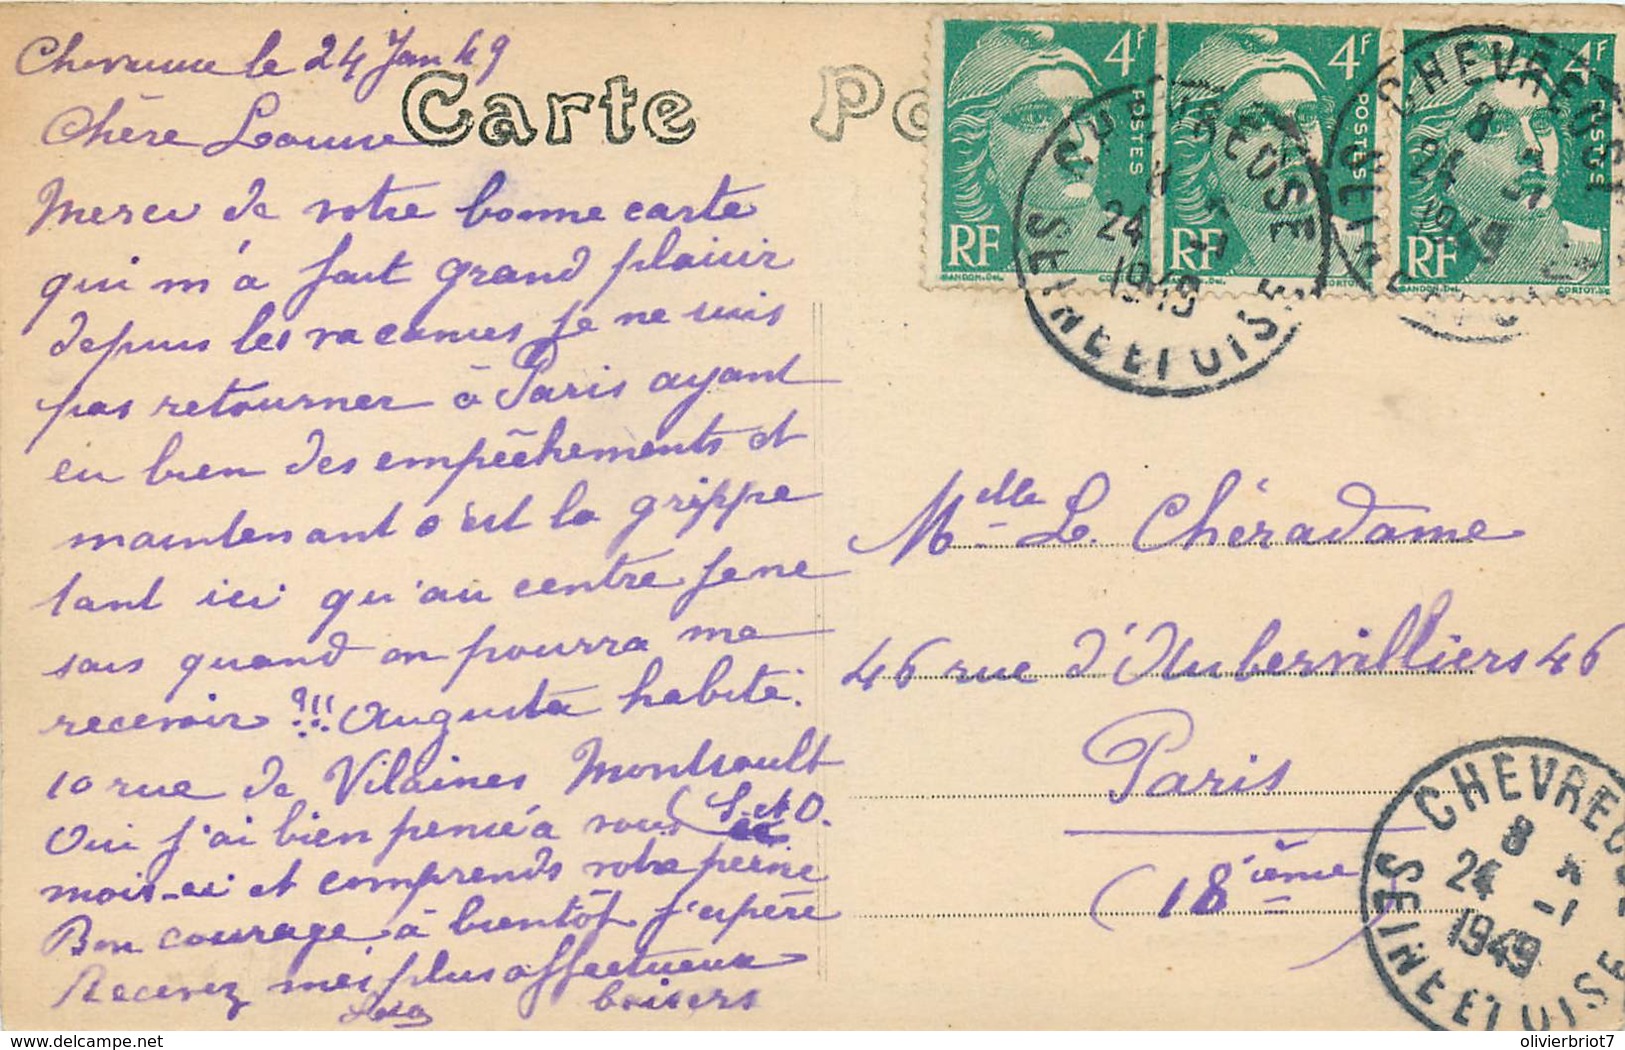 Chevreuse le 24 Jan 49
Carte Po
Chère Louise
Merci de votre bonne carte
qui m'a fait grand plaisir
depuis les vacances je ne suis
pas retourner à Paris ayant
eu bien des empêchements et
maintenant c'est la grippe
tant ici qu'au centre je ne
sais quand on pourra me
recevoir ?!!! Augusta habite :
10 rue de Vilaines Montsoult
(S.et O.
Oui j'ai bien pensé à vous
mois-ci et comprends votre peine
Bon courage à bientôt j'espère
Recevez mes plus affectueux
baisers
4F 4F 4F
POSTES POSTES POSTES
RF RF RF
GANDON.DEL. CORTOT.SC
CHEVREUSE
8
24 -1
1949
SEINE ET OISE
CHEVREUSE
8
24 -1
1949
SEINE ET OISE
Melle L. Chéradame
46 rue d'Aubervilliers 46
Paris
(18ième)
CHEVREUSE
8
24 -1
1949
SEINE ET OISE
delcampe.net
olivierbriot7